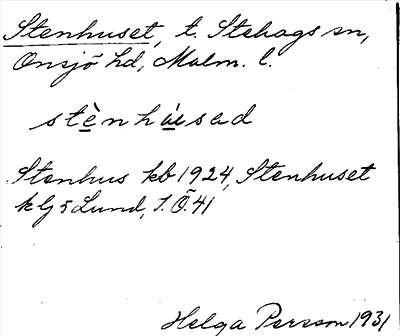 Stenhuset, t. Stehags sn,
Onsjö hd, Malm. l.
stènhúsad
Stenhus kb 1924, Stenhuset
Lund, 1. Ö. 41
Helga Persson 1931